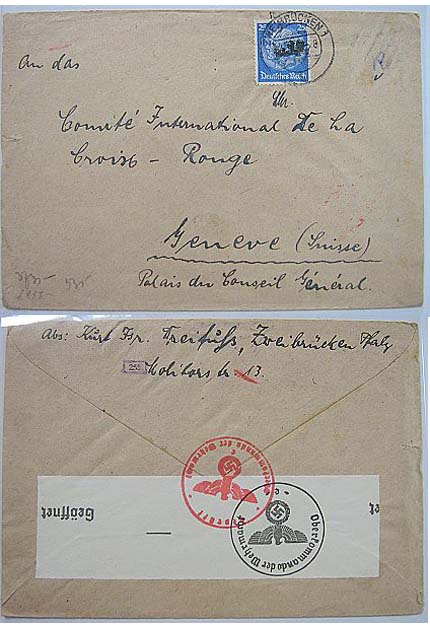 ZWEIBRÜCKEN
25
Deutsches Reich
An das
Comité International De La
Croix - Rouge
Geneve (Suisse)
Palais du Conseil Général.
Abs: Kurt Isr. Dreifuss, Zweibrücken Pfalz
Molitorstr 13.
Geöffnet
Oberkommando der Wehrmacht
Geprüft
e
Oberkommando der Wehrmacht
e